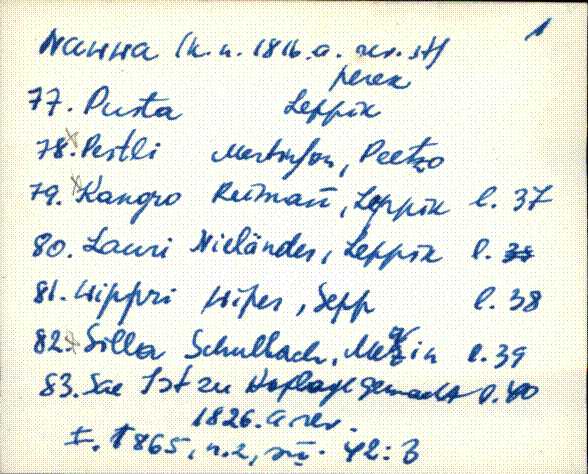 1
Nawwa (k. n. 1816. a. rev. st)
perex
77. Pusta Leppik
78. Pestli Mertinson, Peetzo
79. Kangro Reimañ, Leppik l. 37
80. Lauri Nieländer, Leppik l. 38
81. Wippri Wiper, Sepp l. 38
82. Silla Schulbach, l. 39
83. Sae Ist zu Hoflage gemacht l. 40
1826. a rev.
I. 1865, n. 2, 42: 3